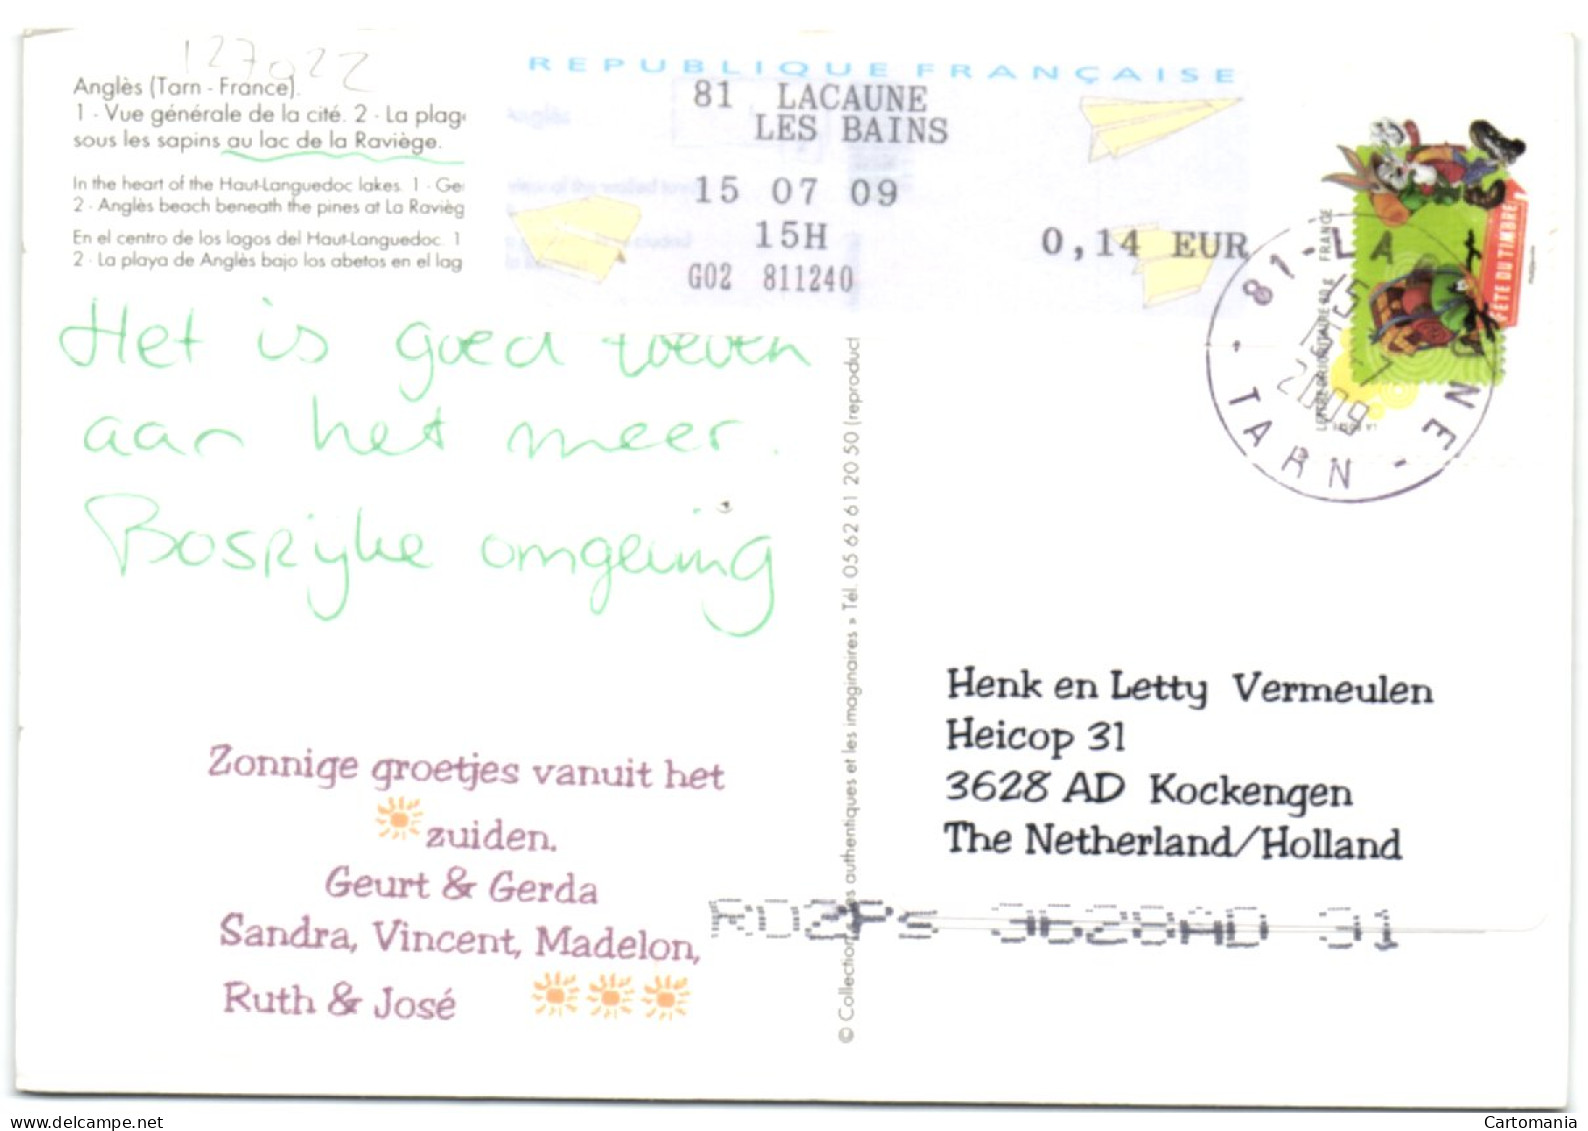 127022
Anglès (Tarn - France).
1 - Vue générale de la cité. 2 - La plag
sous les sapins au lac de la Raviège.
In the heart of the Haut-Languedoc lakes. 1 - Ge
2 - Anglès beach beneath the pines at La Ravièg
En el centro de los lagos del Haut-Languedoc. 1
2 - La playa de Anglès bajo los abetos en el lag
REPUBLIQUE FRANÇAISE
81 LACAUNE
LES BAINS
15 07 09
15H
G02 811240
0,14 EUR
FÊTE DU TIMBRE
FRANCE
81-LA
15
2009
NE
TARN
Het is goed toeven
aan het meer.
Bosrijke omgeving
Zonnige groetjes vanuit het
zuiden.
Geurt & Gerda
Sandra, Vincent, Madelon,
Ruth & José
© Collection es authentiques et les imaginaires » Tél. 05 62 61 20 50 (reproduct
Henk en Letty Vermeulen
Heicop 31
3628 AD Kockengen
The Netherland/Holland
3628AD 31
Cartomania